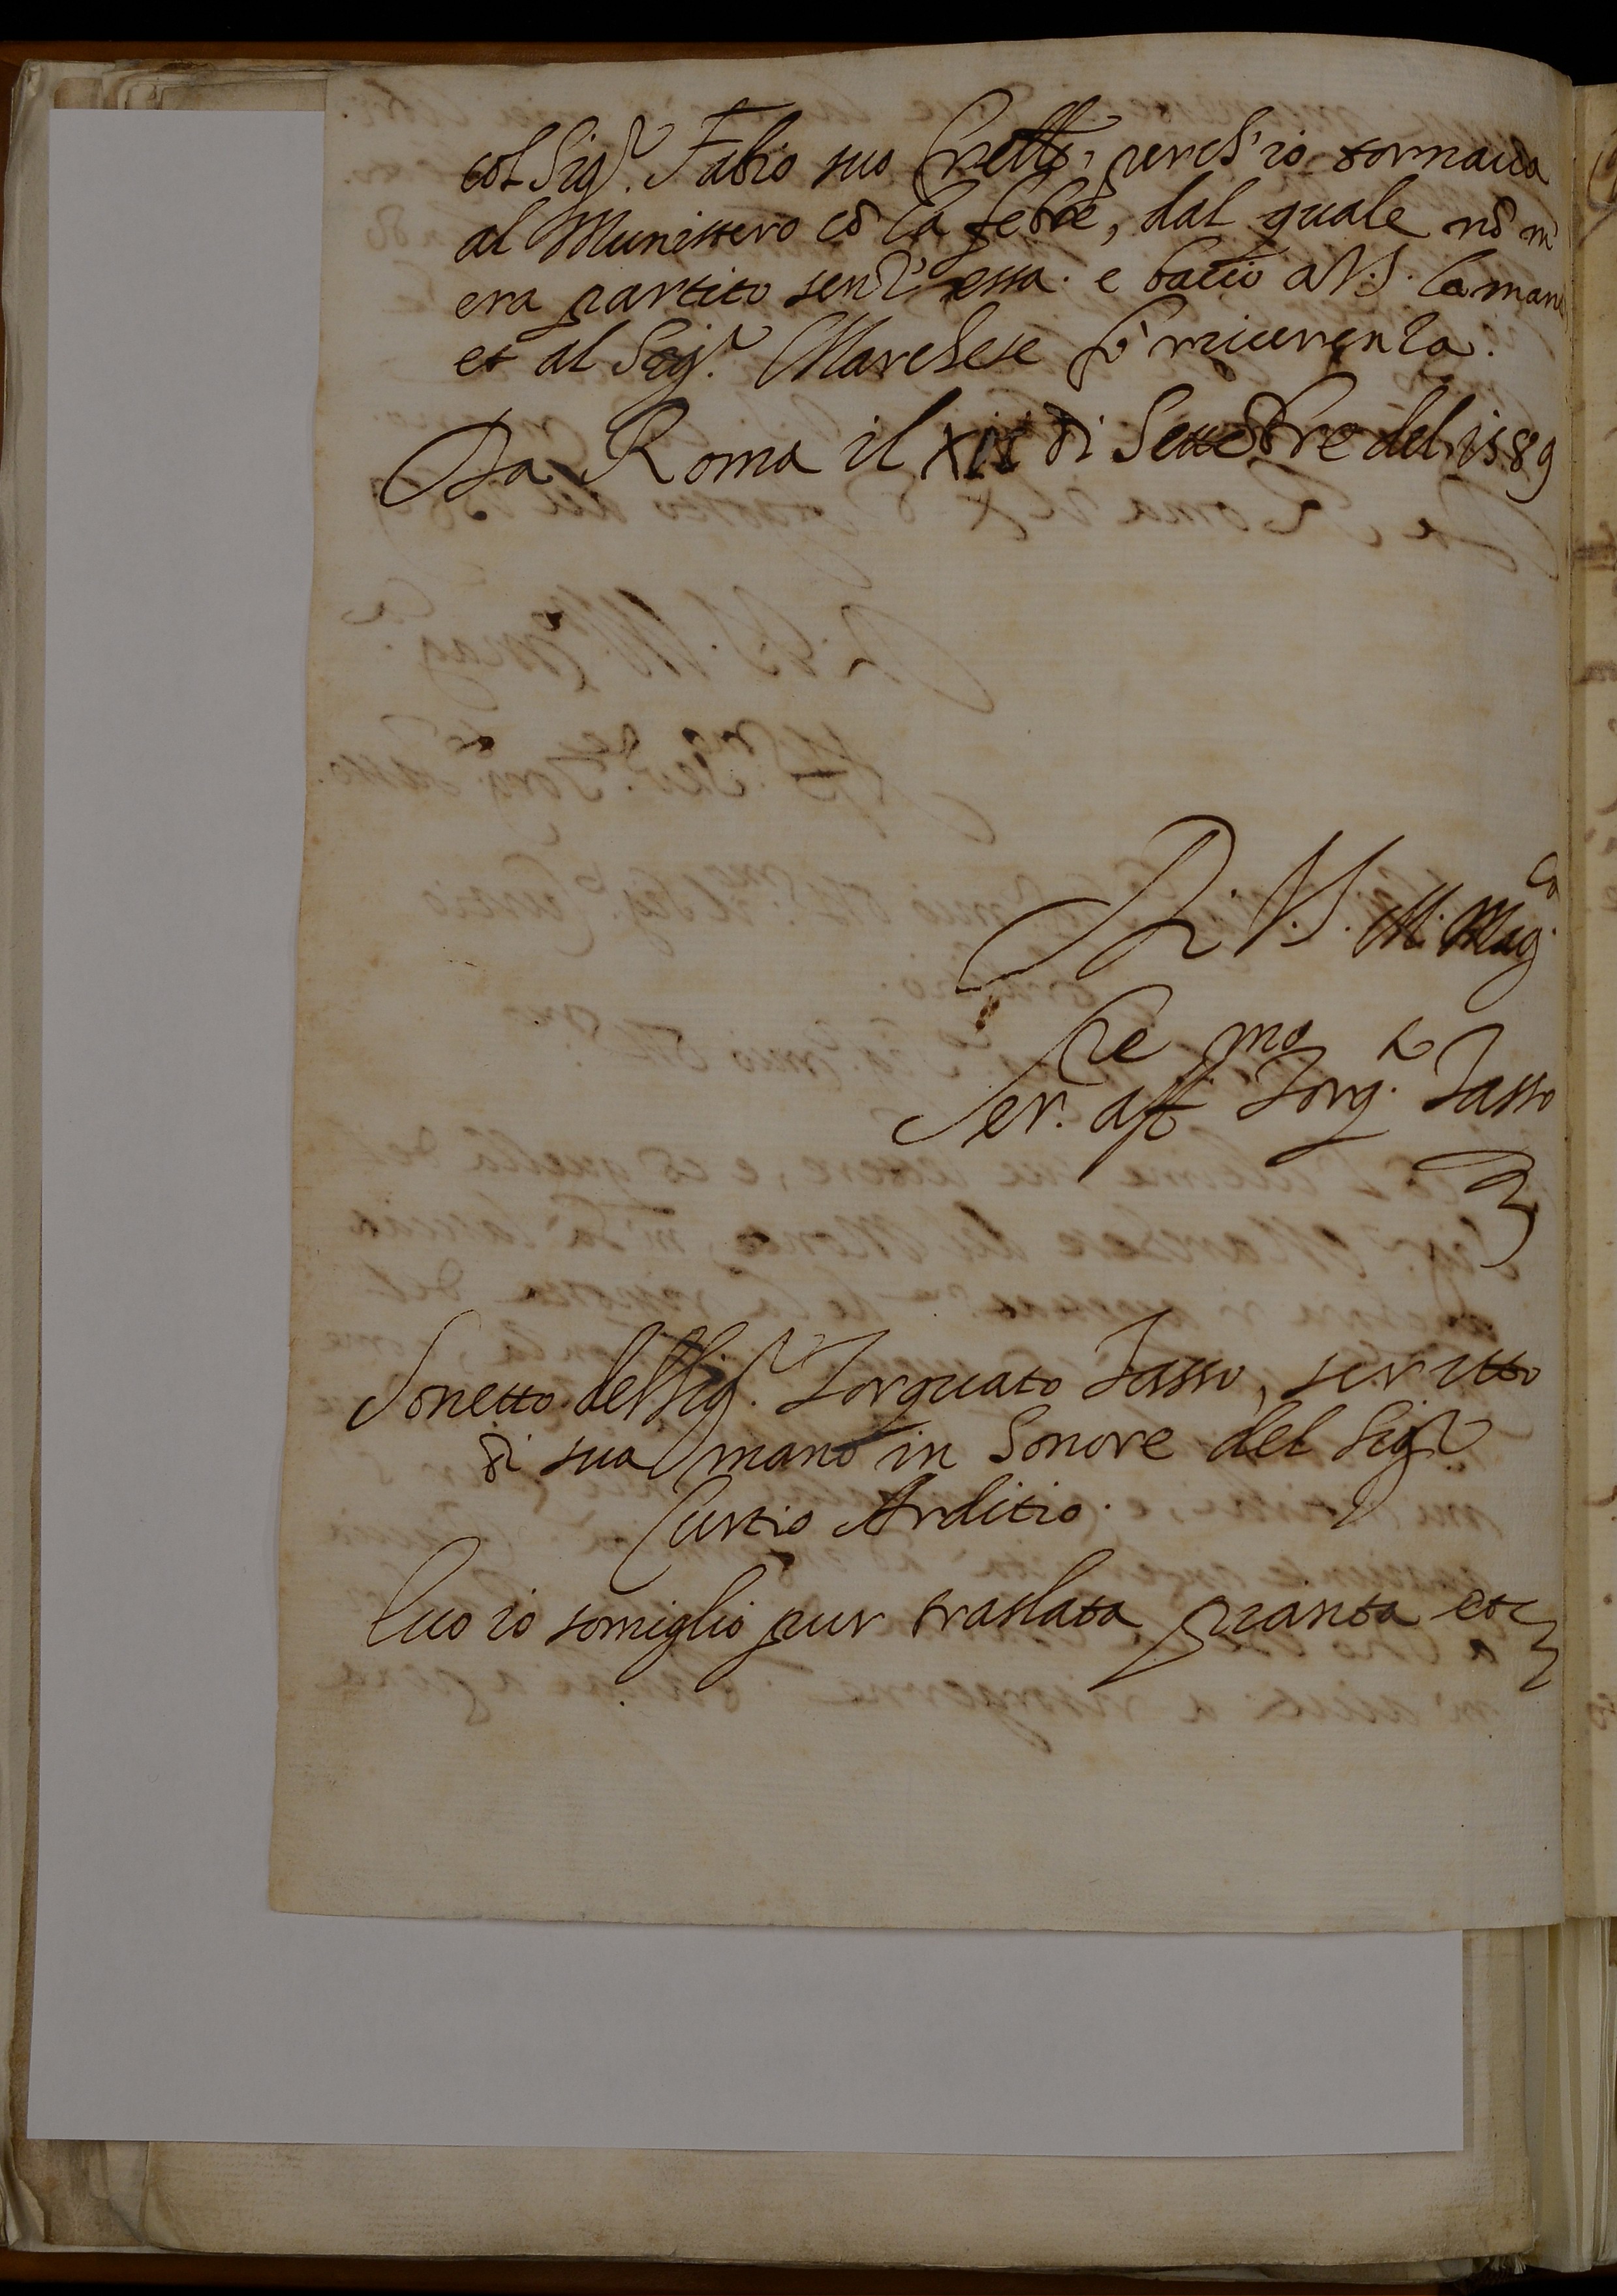 col Sig.r Fabio suo fretllo, perch'io tornaua
al Munistero cõ la febre, dal quale nõ m'
era partito senz'essa. e bacio a V.S. la mano
et al Sig.r Marchese fò riuerenza.
Da Roma il di Settẽbre del 1589
Di V.S. M. Mag.ca
Ser.re aff.mo Torq.to Tasso
Sonetto del Sig.r Torquato Tasso, scritto
di sua mano in honore del Sig.r
Curtio Arditio.
io somiglio pur traslata pianta etc